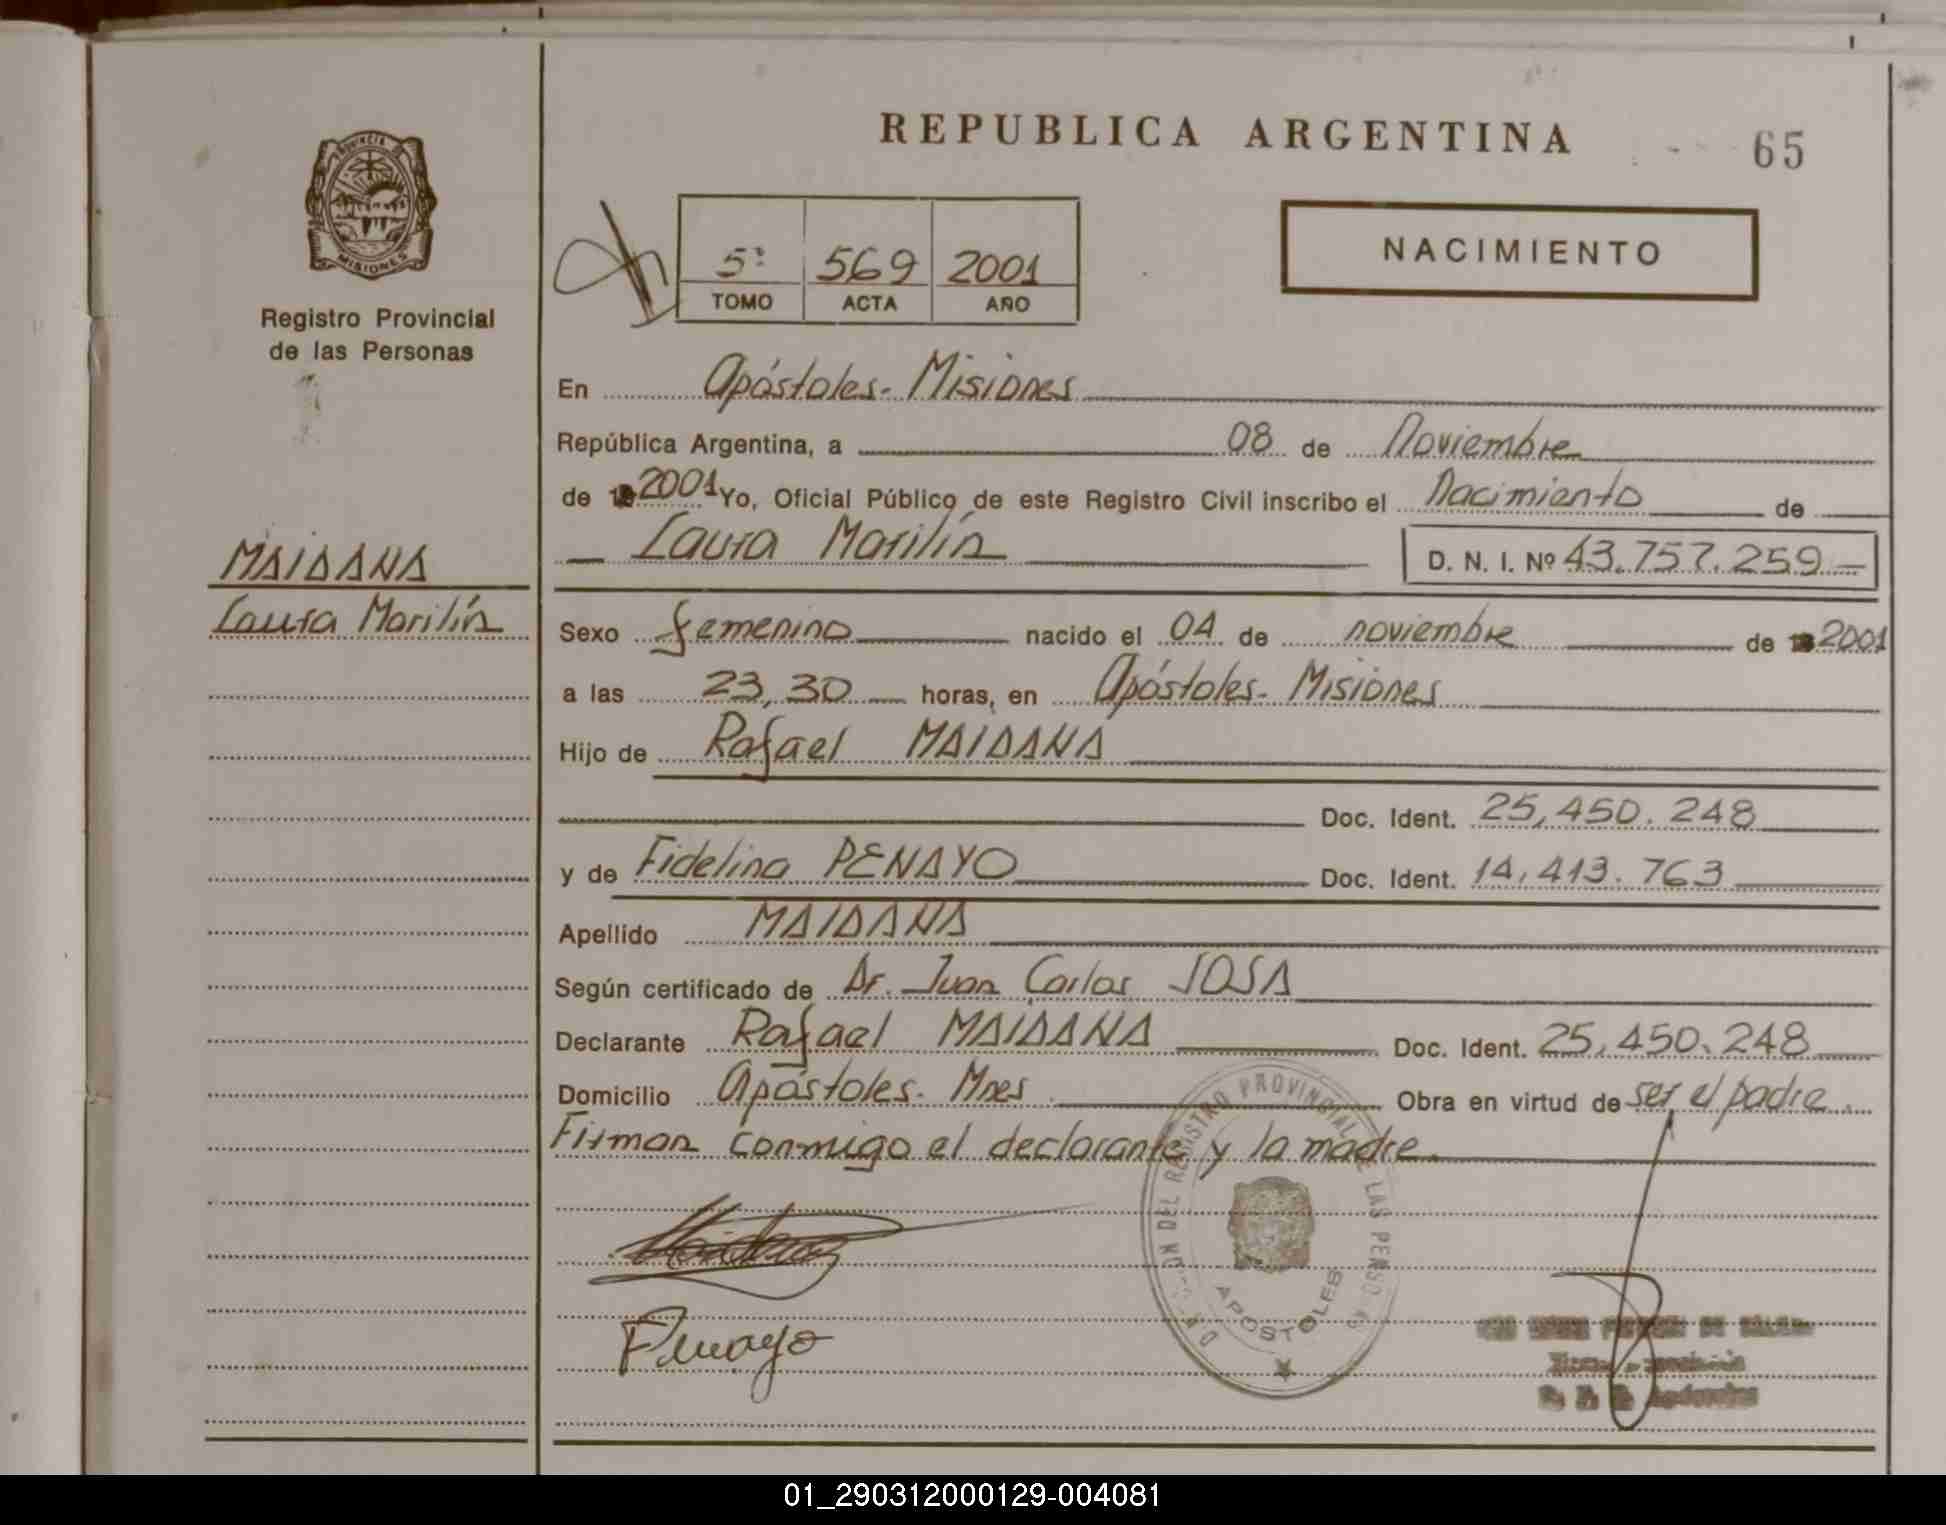 REPUBLICA ARGENTINA
65
PROVINCIA DE
MISIONES
Registro Provincial
de las Personas
5º 569 2001
TOMO ACTA AÑO
NACIMIENTO
En Apóstoles- Misiones
República Argentina, a 08 de Noviembre
de 2001 Yo, Oficial Público de este Registro Civil inscribo el Nacimiento de
Laura Marilín D. N. I. Nº 43.757.259
MAIDANA
Laura Marilín
Sexo femenino nacido el 04 de noviembre de 2001
a las 23,30 horas, en Apóstoles- Misiones
Hijo de Rafael MAIDANA
Doc. Ident. 25,450.248
y de Fidelina PENAYO Doc. Ident. 14,413.763
Apellido MAIDANA
Según certificado de Dr. Juan Carlos SOSA
Declarante Rafael MAIDANA Doc. Ident. 25,450.248
Domicilio Apóstoles- Mnes Obra en virtud de ser el padre.
Firman conmigo el declarante y la madre.
DEL REGISTRO PROVINCIAL DE LAS PERSONAS
APOSTOLES
Penayo
01_290312000129-004081